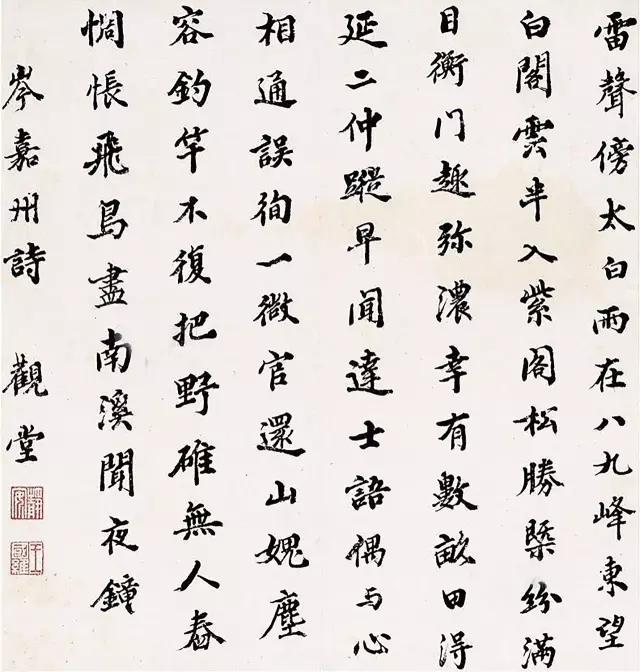 雷聲傍太白雨在八九峰東望
白閣雲半入紫閣松勝槩紛滿
目衡門趣弥濃幸有數畝田得
延二仲蹤早聞達士語偶与心
相通誤徇一微官還山媿塵
容釣竿不復把野碓無人舂
惆悵飛鳥盡南溪聞夜鐘
岑嘉州詩 觀堂
靜安
王國維